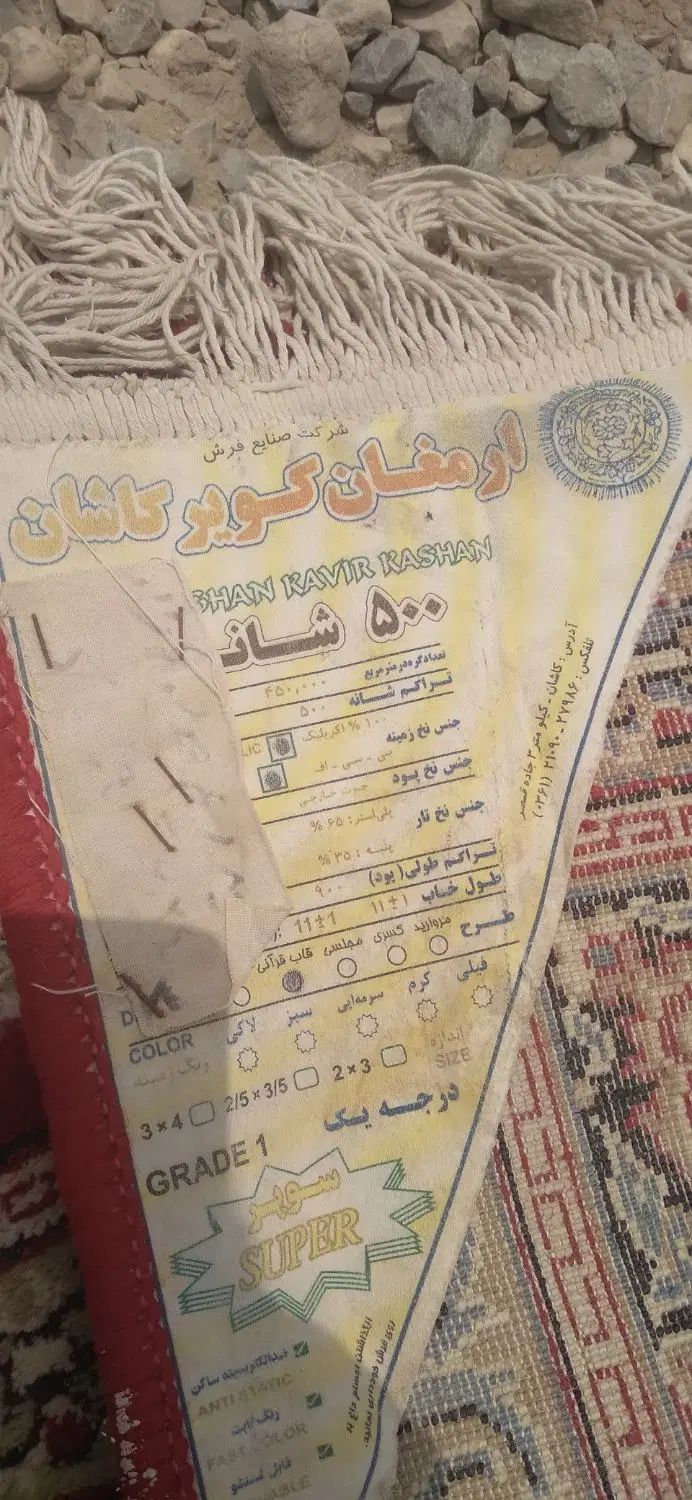 شرکت صنایع فرش
ارمغان کویر کاشان
KAVIR KASHAN
۵۰۰ شانه
تعداد گره در متر مربع ۴۵۰,۰۰۰
تراکم شانه ۵۰۰
جنس نخ زمینه ۱۰۰ % اکریلیک
بی - سی - اف
جنس نخ پود جوت خارجی
جنس نخ تار پلی استر: ۶۵ %
پنبه : ۳۵ %
تراکم طولی (پود) ۹۰۰
طول خاب ۱۱±۱ 11±1
طرح مروارید کسری مجلسی قاب قرآنی
فیلی کرم سرمه‌ایی سبز لاکی
COLOR
رنگ زمینه
اندازه
SIZE
2 × 3 2/5 × 3/5 3 × 4
درجه یک
GRADE 1
سوپر
SUPER
ضدالکتریسیته ساکن
ANTI STATIC
رنگ ثابت
FAST COLOR
قابل شستشو
آدرس : کاشان - کیلومتر ۳ جاده قمصر
تلفکس : ۲۷۹۸۶ - ۲۱۰۹۰ (۰۳۶۱)
ازگذاشتن اجسام داغ به
روی فرش خودداری نمائید.